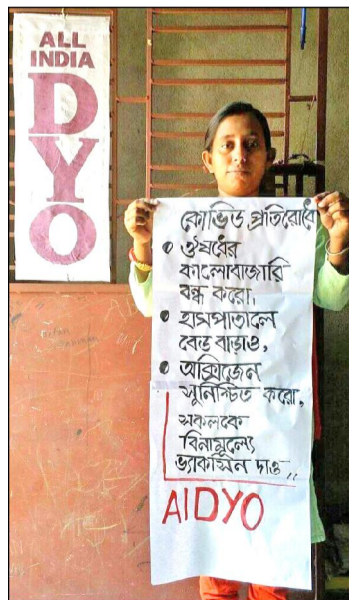 ALL
INDIA
D
Y
O
কোভিড প্রতিরোধে
• ঔষধের
কালোবাজারি
বন্ধ করো,
• হাসপাতালে
বেড বাড়াও,
• অক্সিজেন
সুনিশ্চিত করো,
সকলকে
বিনামূল্যে
ভ্যাকসিন দাও,,
AIDYO